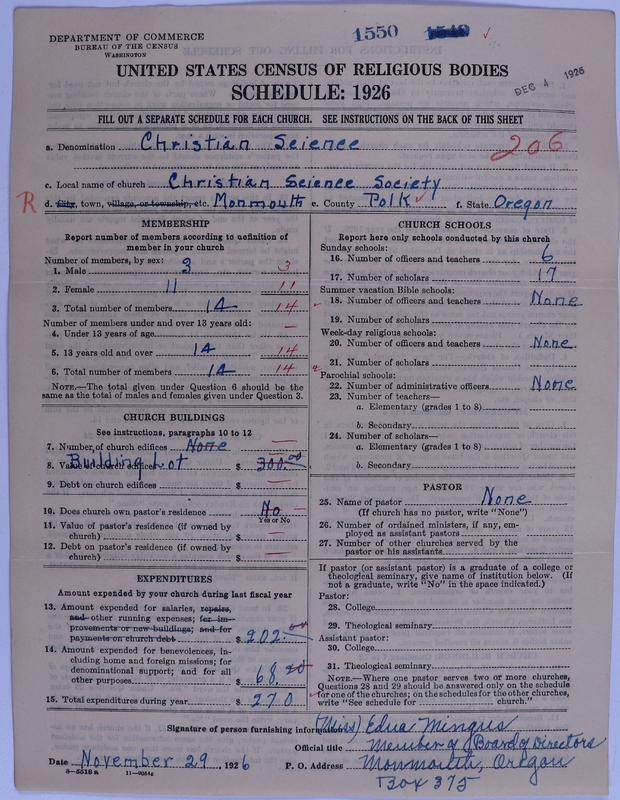 1550 1549
DEPARTMENT OF COMMERCE
BUREAU OF THE CENSUS
WASHINGTON
UNITED STATES CENSUS OF RELIGIOUS BODIES
SCHEDULE: 1926
DEC 4 1926
FILL OUT A SEPARATE SCHEDULE FOR EACH CHURCH. SEE INSTRUCTIONS ON THE BACK OF THIS SHEET
a. Denomination Christian Science 206
c. Local name of church Christian Science Society
R d. City, town, village, or township, etc. Monmouth e. County Polk f. State Oregon
MEMBERSHIP
Report number of members according to definition of
member in your church
Number of members, by sex:
1. Male 3 3
2. Female 11 11
3. Total number of members 14 14
Number of members under and over 13 years old:
4. Under 13 years of age —
5. 13 years old and over 14 14
6. Total number of members 14 14
NOTE.—The total given under Question 6 should be
same as the total of males and females given under Question 3.
CHURCH BUILDINGS
See instructions, paragraphs 10 to 12
7. Number of church edifices None —
8. Value of church edifices Building Lot $ 300.00
9. Debt on church edifices $ —
10. Does church own pastor's residence No —
Yes or No
11. Value of pastor's residence (if owned by
church) $ —
12. Debt on pastor's residence (if owned by
church) $ —
EXPENDITURES
Amount expended by your church during last fiscal year
13. Amount expended for salaries, repairs,
and other running expenses; for im-
provements or new buildings; and for
payments on church debt $ 202.
14. Amount expended for benevolences, in-
cluding home and foreign missions; for
denominational support; and for all
other purposes $ 68.
15. Total expenditures during year $ 270
CHURCH SCHOOLS
Report here only schools conducted by this church
Sunday schools:
16. Number of officers and teachers 6
17. Number of scholars 17
Summer vacation Bible schools:
18. Number of officers and teachers None
19. Number of scholars
Week-day religious schools:
20. Number of officers and teachers None
21. Number of scholars
Parochial schools:
22. Number of administrative officers None
23. Number of teachers—
a. Elementary (grades 1 to 8)
b. Secondary
24. Number of scholars—
a. Elementary (grades 1 to 8)
b. Secondary
PASTOR
25. Name of pastor None
(If church has no pastor, write "None")
26. Number of ordained ministers, if any, em-
ployed as assistant pastors
27. Number of other churches served by the
pastor or his assistants
If pastor (or assistant pastor) is a graduate of a college or
theological seminary, give name of institution below. (If
not a graduate, write "No" in the space indicated.)
Pastor:
28. College
29. Theological seminary
Assistant pastor:
30. College
31. Theological seminary
NOTE.—Where one pastor serves two or more churches,
Questions 28 and 29 should be answered only on the schedule
for one of the churches; on the schedules for the other churches,
write "See schedule for church."
Signature of person furnishing information (Miss) Edna Mingus
Official title Member of Board of Directors
Date November 29, 1926 P. O. Address Monmouth, Oregon
8—5518 a Box 375